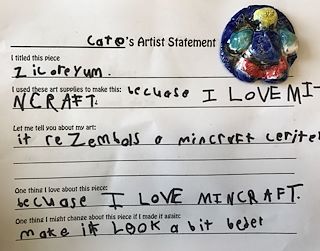 Cate's Artist Statement
I titled this piece
Ziloreyum.
I used these art supplies to make this: becuase I LOVE MI
NCRAFT.
Let me tell you about my art:
it reZembols a mincraft cerite
One thing I love about this piece:
becuase I LOVE MINCRAFT.
One thing I might change about this piece if I made it again:
make it LOOK a bit beder